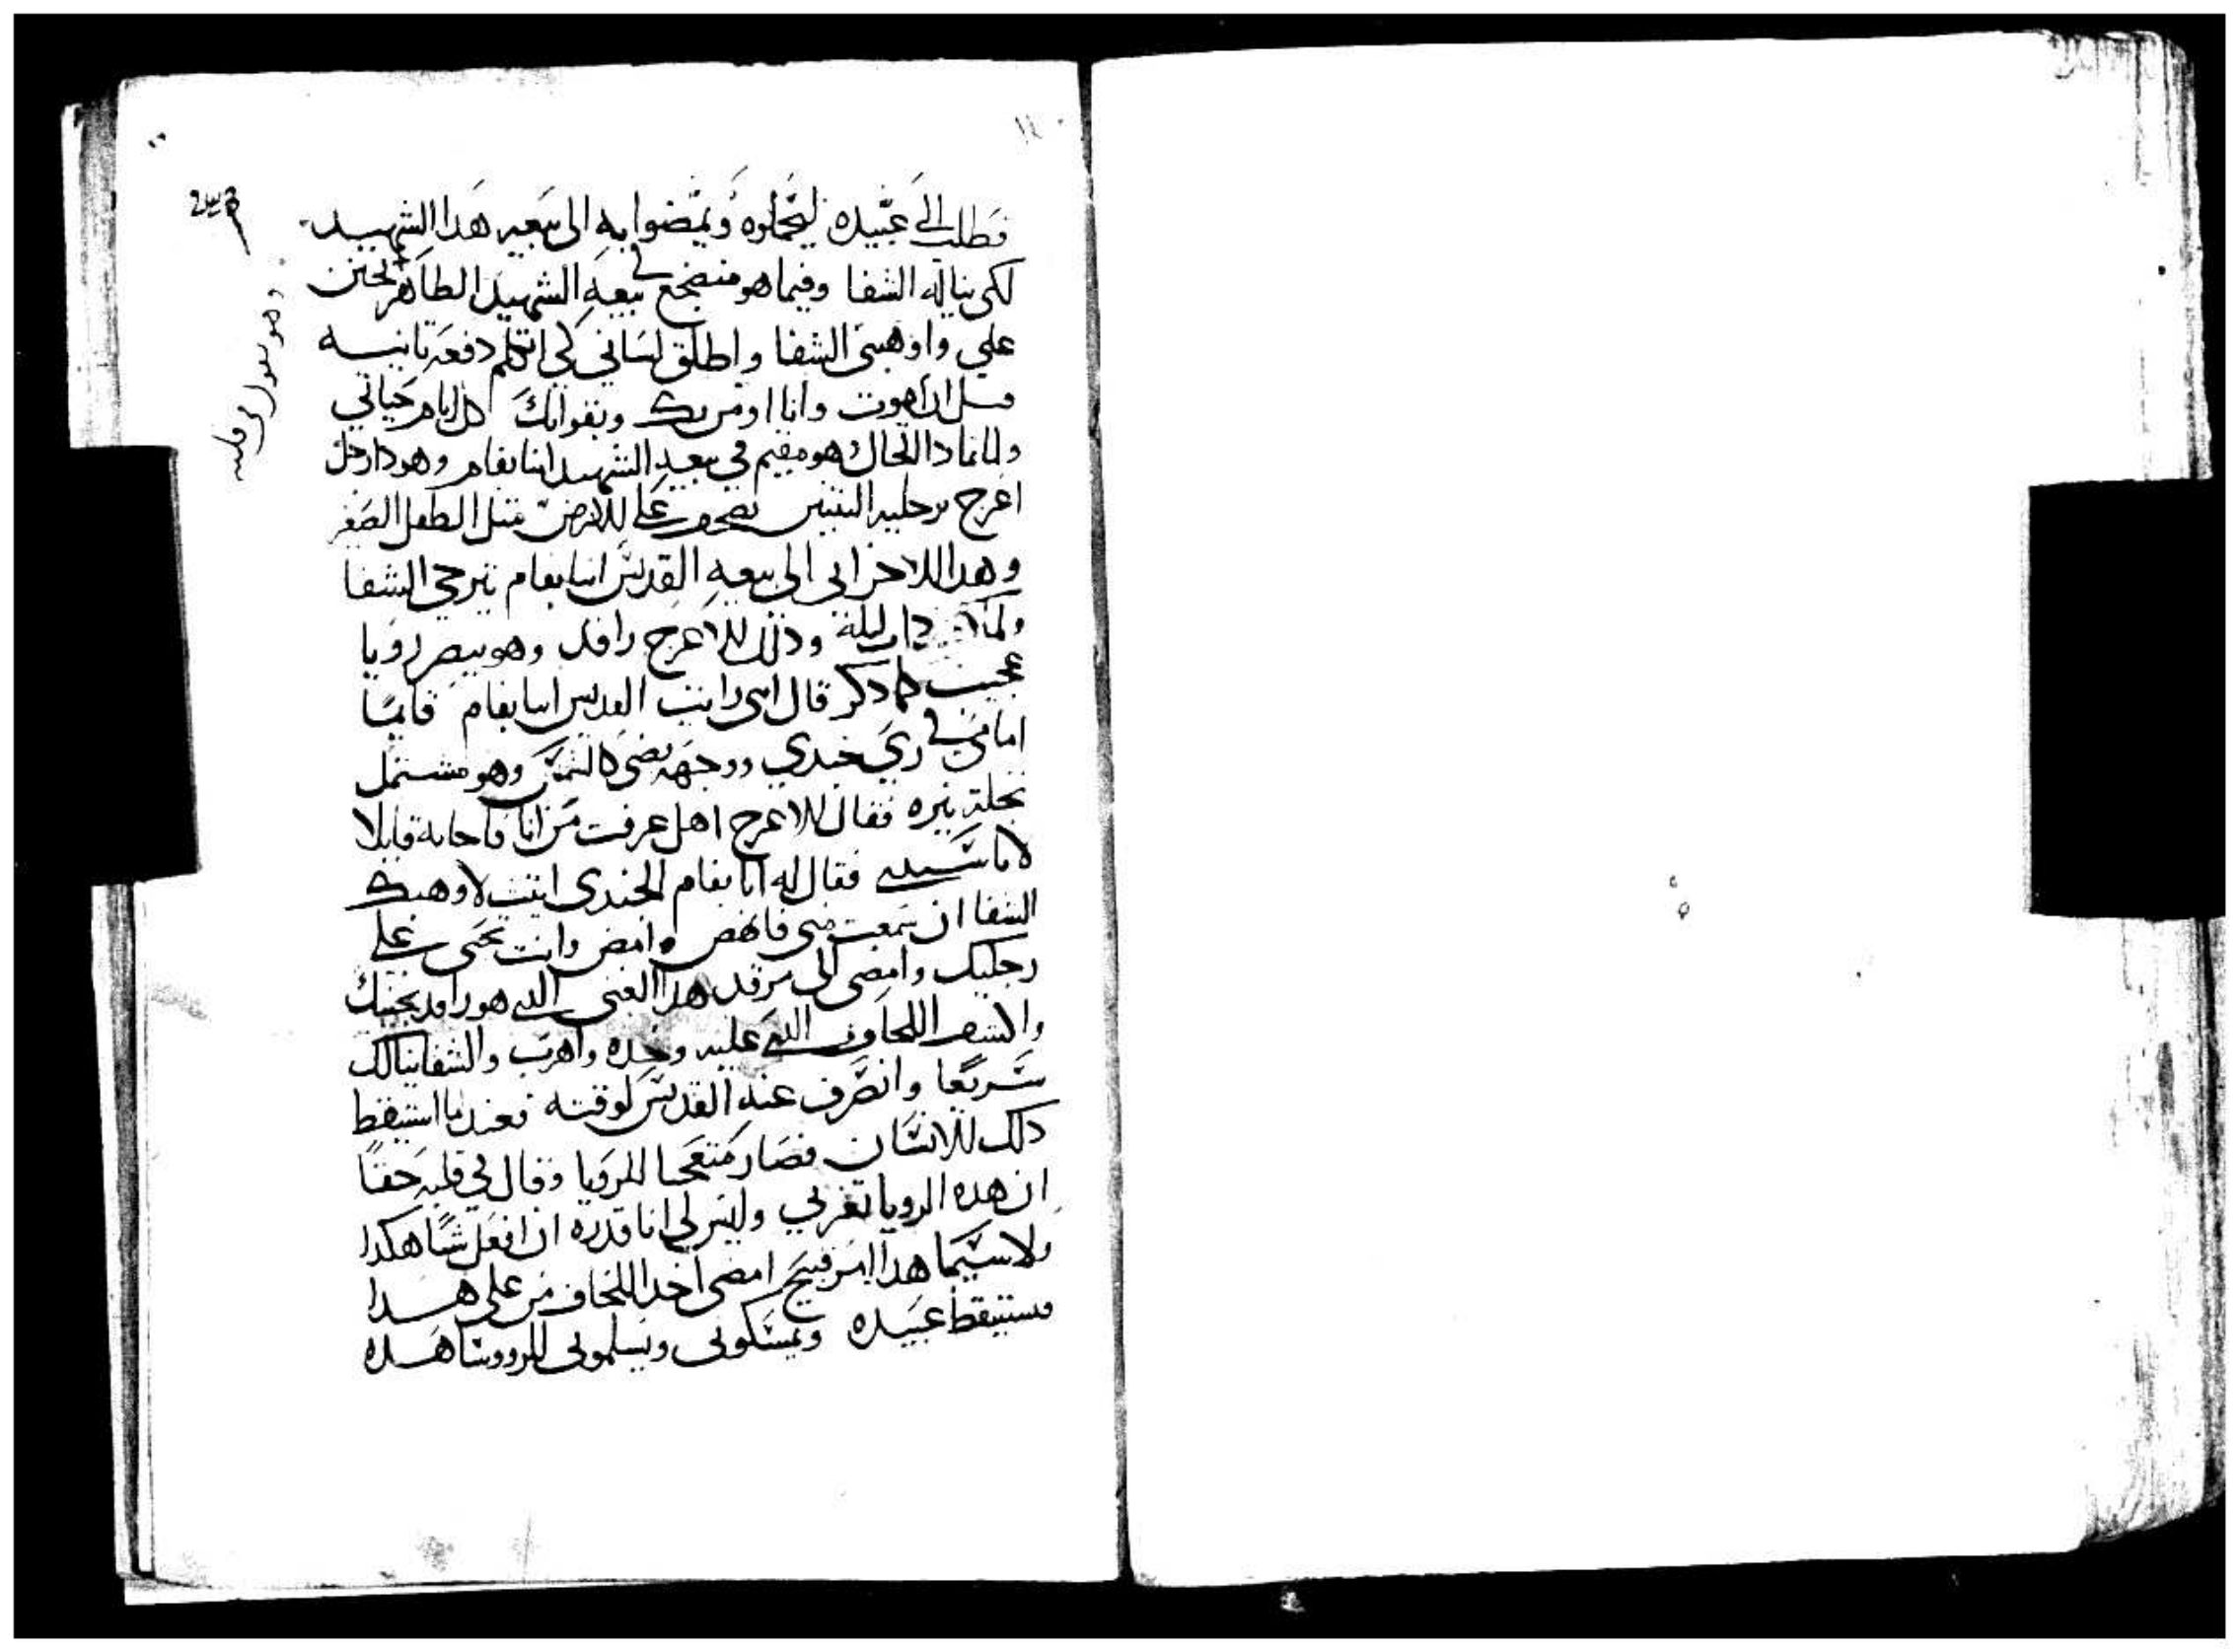 فطلب الي عبيده ليحملوه ويمضوا به الى بيعه هدا الشهيد
لكى يناله الشفا وفيما هو منضجع في بيعه الشهيد الطاهر تحنن
علي واوهبنى الشفا واطلق لسانى لكي اتكلم دفعه تانيه
قبل ان اموت وانا اومن بك وبقواتك كل ايام حياتي
هو مقيم في بيعه الشهيد انبا بفام وهودا رجل
اعرج برجليه التنتين يزحف علي الارض متل الطفل الصغير
وهدا الاخر اتى الى بيعه القديس انبا بفام يترجى الشفا
دات ليلة وذلك الاعرج راقد وهو يبصر رويا
عجيبه كما دكر قال انى رايت القديس انبا بفام قايمًا
امامى في زي جندي ووجهه يضى كالشمس وهو مشتمل
بحلة نيره فقال للاعرج اهل عرفت من انا فاجابه قايلا
لا يا سيدي فقال له انا بفام الجندى اتيت لاوهبك
الشفا ان سمعت منى فانهض وامض وانت تحبى على
رجليك وامضى الى مرقد هدا الغنى الدي هو راقد بجنبك
واكشف اللحاف الدي عليه وخده واهرب والشفا ينالك
سريعًا وانصرف عنه القديس لوقته فعندما استيقظ
دلك الانسان فصار متعجبا للرويا وقال في قلبه حقًا
ان هده الرويا تغربي وليس لي انا قدره ان افعل شيا هكدا
ولا سيما هدا امر قبيح امضى اخد اللحاف من على هدا
فستيقظ عبيده ويمسكونى ويسلمونى للروسا هده
وهو يقول في قلبه